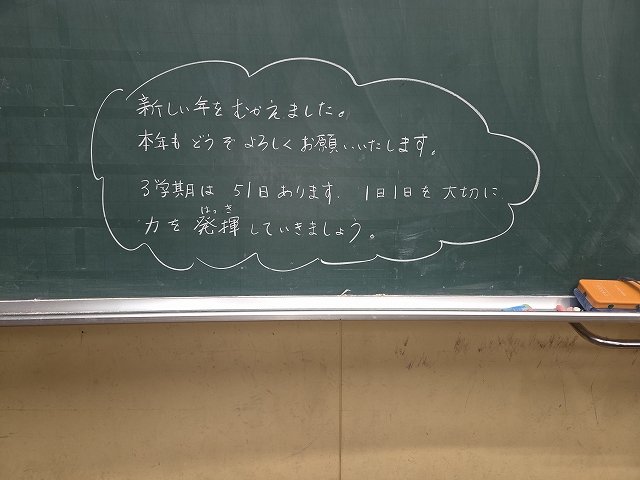 新しい年をむかえました。
本年もどうぞよろしくお願いいたします。
3学期は 51日あります. 1日1日を大切に
はっき
力を発揮していきましょう。